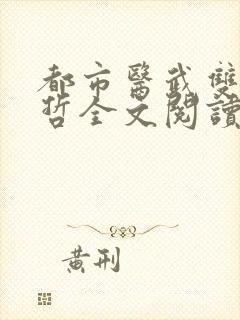 都市醫武雙
哲全文閱讀
黃刑